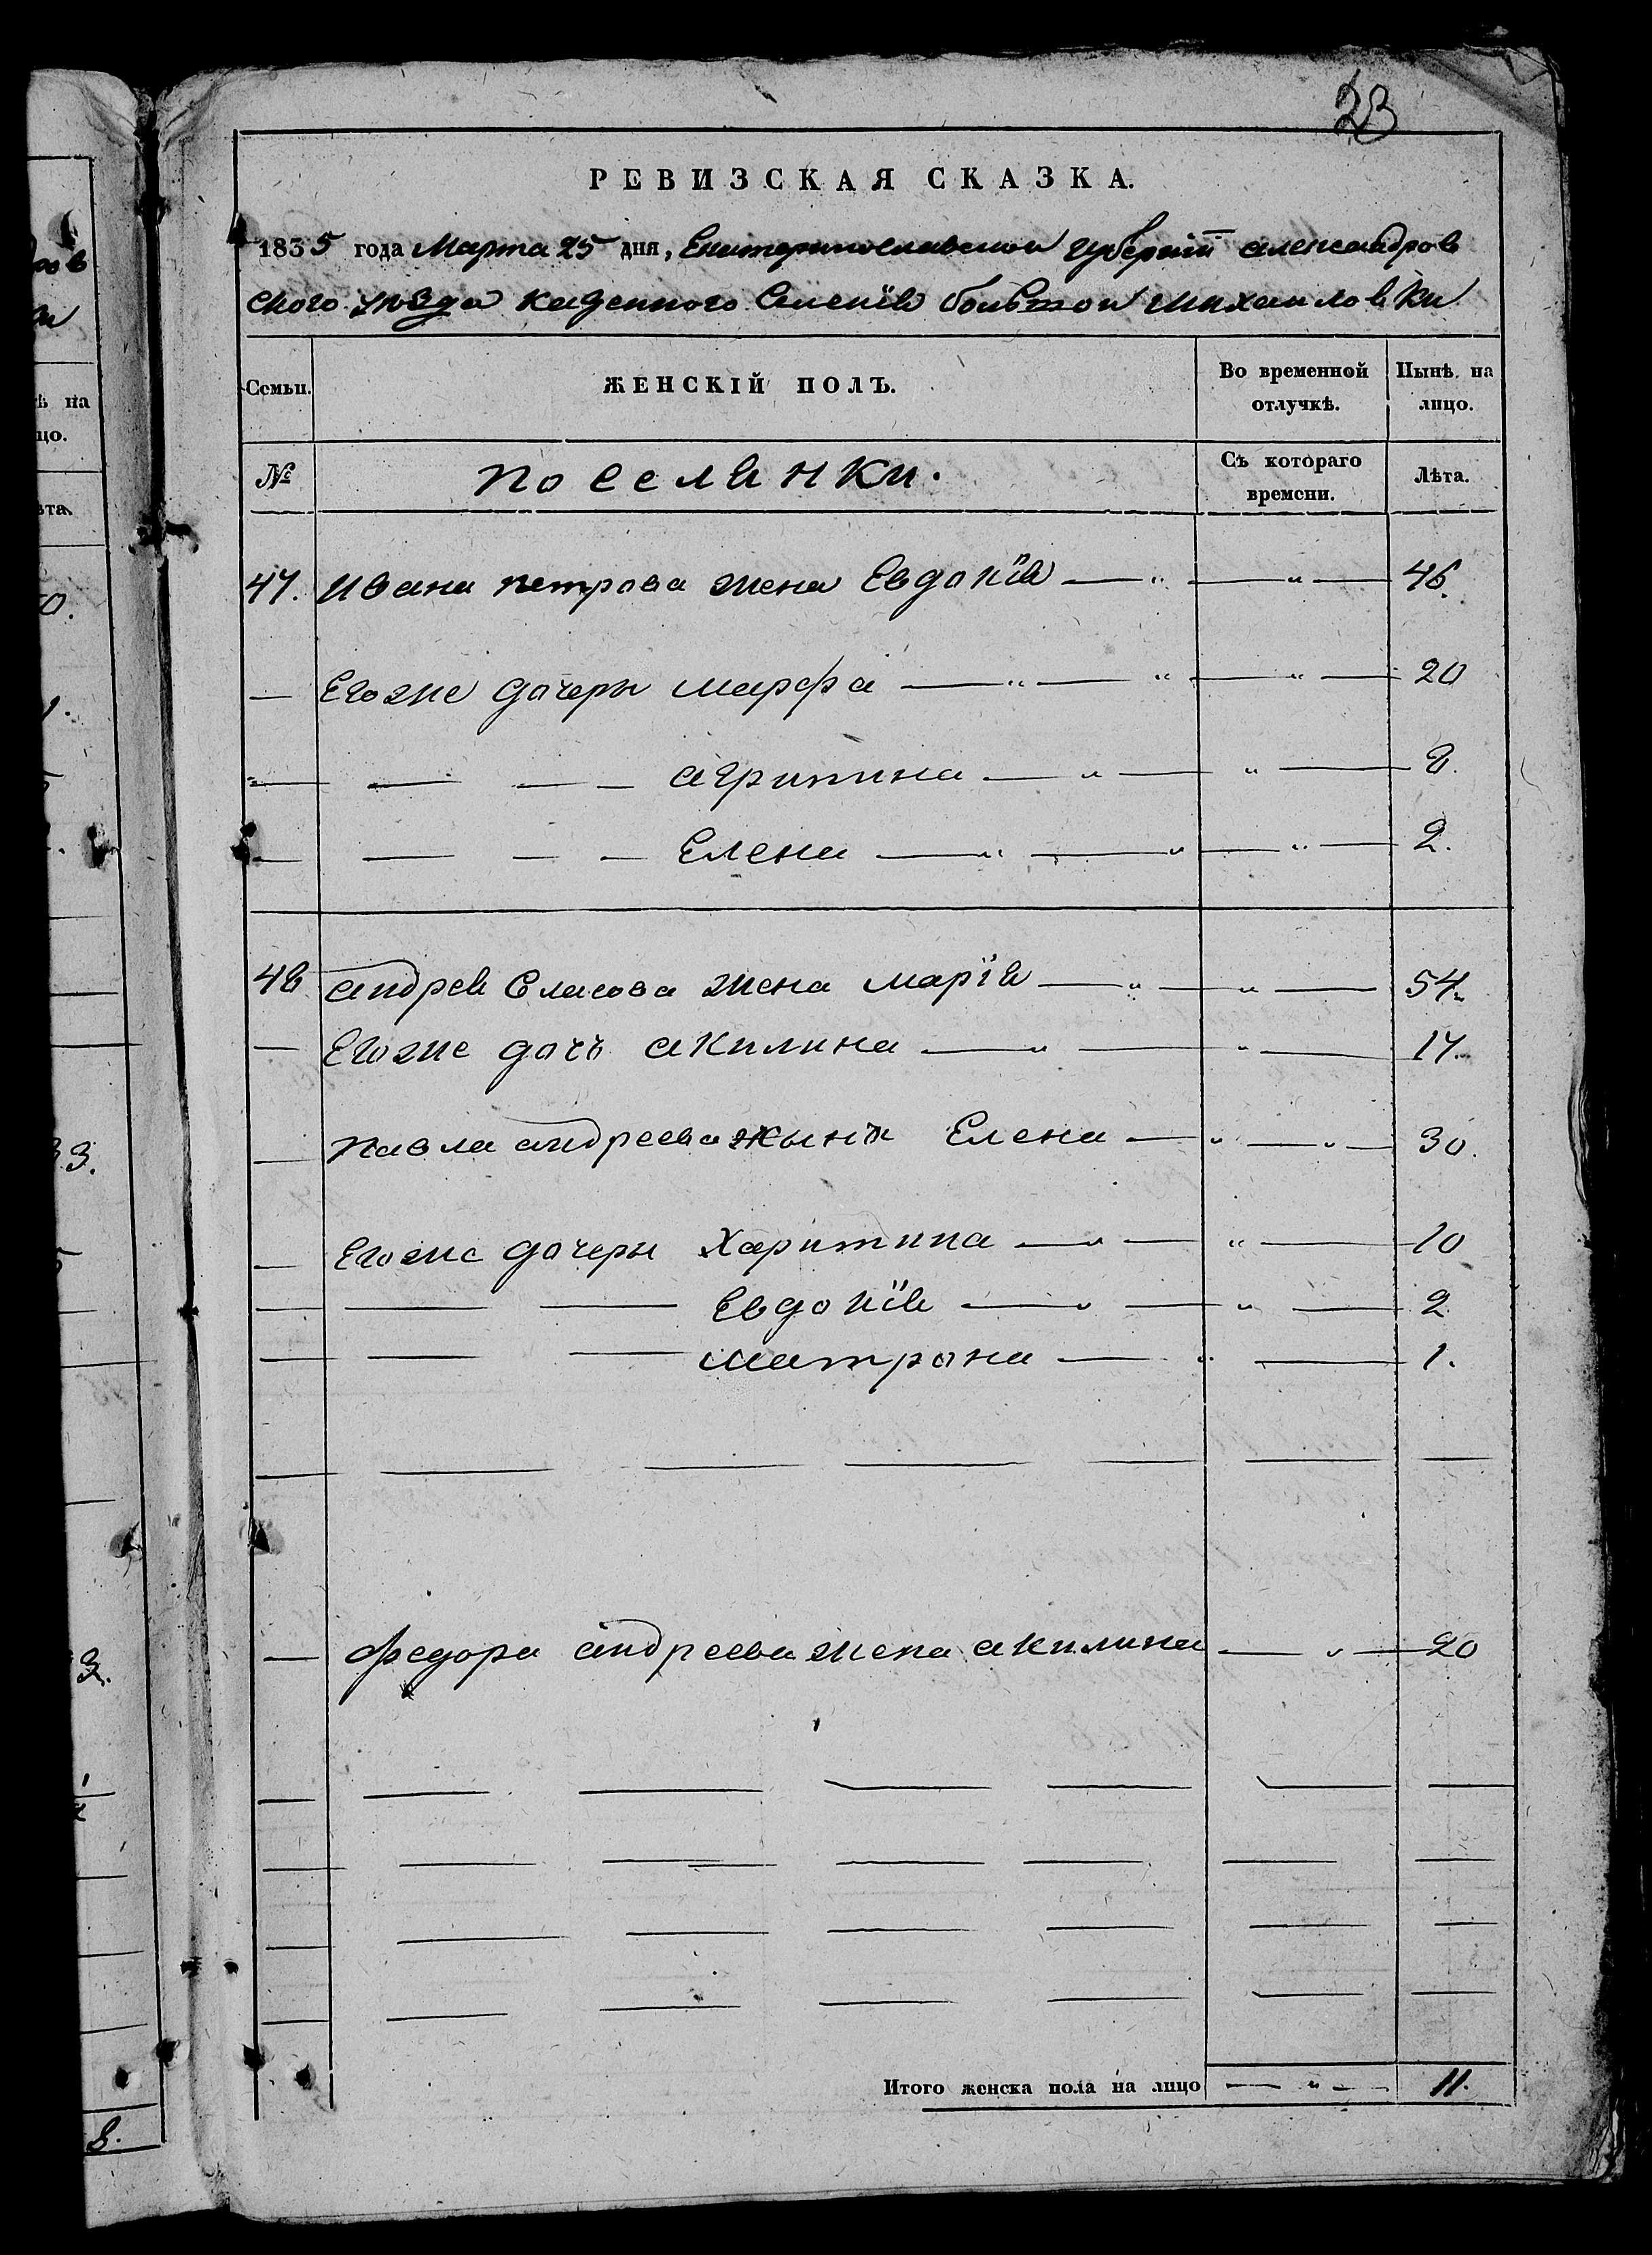 23
РЕВИЗСКАЯ СКАЗКА.
1835 года Марта 25 дня, Екатеринославской губерніи александров
ского уѣзда казенного Селенія большой михаиловки
Семьи. ЖЕНСКІЙ ПОЛЪ. Во временной отлучкѣ. Нынѣ на лицо.
№ поселянки. Съ котораго времени. Лѣта.
47. ивана петрова жена Евдокія — „ — „ — 46.
— Егоже дочери марфа — „ — „ — „ — 20
„ — — — агрипина — „ — „ — 8.
— — — — Елена — „ — „ — „ — 2.
48 андрея власова жена марія — „ — „ — 54.
— Егоже дочь акилина — „ — „ — 17.
— павла андреева жына Елена — „ — „ — 30.
— Егоже дочери Харитина — „ — „ — 10
— — — Евдокія — „ — „ — 2
— — — матрона — „ — 1.
— федора андреева жена акилина — „ — 20
Итого женска пола на лицо — „ — 11.
ров
ки
ѣ на
цо.
ѣта.
0.
33.
3.
8.